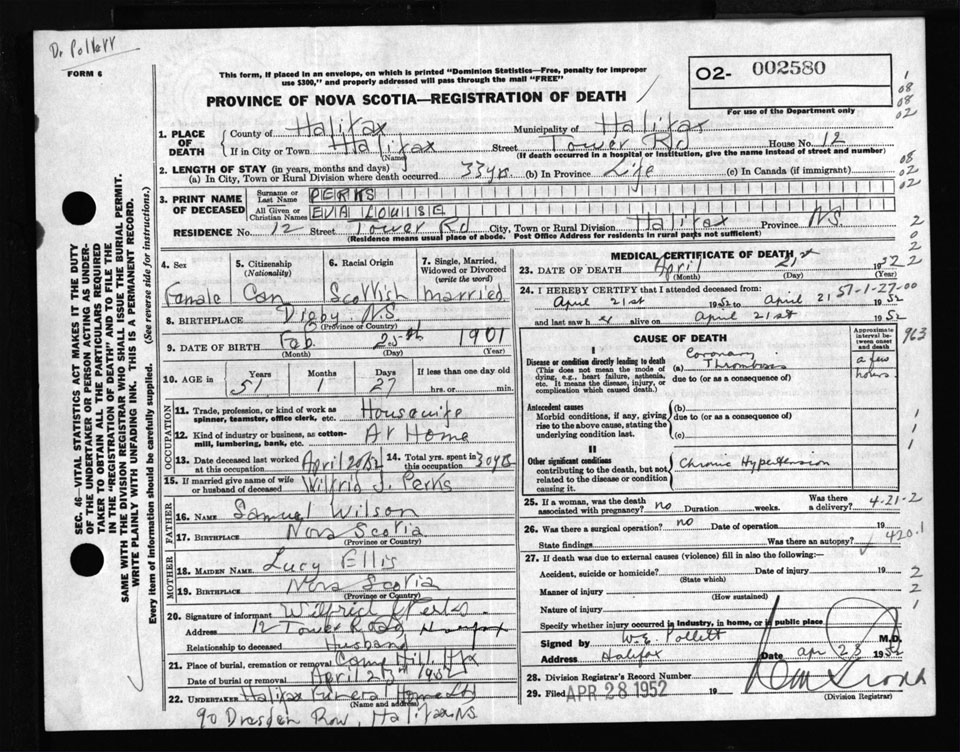 Dr Pollett
FORM 6
This form, if placed in an envelope, on which is printed "Dominion Statistics—Free, penalty for improper
use $300," and properly addressed will pass through the mail "FREE"
O2- 002580
For use of the Department only
PROVINCE OF NOVA SCOTIA—REGISTRATION OF DEATH
1. PLACE OF DEATH
County of Halifax Municipality of Halifax
If in City or Town Halifax Street Tower Rd House No. 12
(Name) (If death occurred in a hospital or institution, give the name instead of street and number)
2. LENGTH OF STAY (in years, months and days)
(a) In City, Town or Rural Division where death occurred 33 yrs. (b) In Province Life (c) In Canada (if immigrant)
3. PRINT NAME OF DECEASED
Surname or Last Name PERKS
All Given or Christian Names EVA LOUISE
RESIDENCE No. 12 Street Tower Rd City, Town or Rural Division Halifax Province N.S.
(Residence means usual place of abode. Post Office Address for residents in rural parts not sufficient)
4. Sex
5. Citizenship (Nationality)
6. Racial Origin
7. Single, Married, Widowed or Divorced (write the word)
Female Can Scottish Married
8. BIRTHPLACE Digby N.S.
(Province or Country)
9. DATE OF BIRTH Feb 25th 1901
(Month) (Day) (Year)
10. AGE in Years Months Days If less than one day old
51 1 27 hrs. or min.
OCCUPATION
11. Trade, profession, or kind of work as spinner, teamster, office clerk, etc. Housewife
12. Kind of industry or business, as cotton-mill, lumbering, bank, etc. At Home
13. Date deceased last worked at this occupation April 20/52
14. Total yrs. spent in this occupation 30 yrs
15. If married give name of wife or husband of deceased Wilfrid J. Perks
FATHER
16. NAME Samuel Wilson
17. BIRTHPLACE Nova Scotia
(Province or Country)
MOTHER
18. MAIDEN NAME Lucy Ellis
19. BIRTHPLACE Nova Scotia
(Province or Country)
20. Signature of informant Wilfrid J Perks
Address 12 Tower Road Halifax
Relationship to deceased Husband
21. Place of burial, cremation or removal Camp Hill, Hfx
Date of burial or removal April 23rd 1952
22. UNDERTAKER Halifax Funeral Home
(Name and address)
90 Dresden Row, Halifax NS
MEDICAL CERTIFICATE OF DEATH
23. DATE OF DEATH April 21st 1952
(Month) (Day) (Year)
24. I HEREBY CERTIFY that I attended deceased from: 57-1-27-00
April 21st 1952 to April 21 1952
and last saw her alive on April 21st 1952
CAUSE OF DEATH
Approximate interval between onset and death
I
Disease or condition directly leading to death
(This does not mean the mode of dying, e.g., heart failure, asthenia, etc. It means the disease, injury, or complication which caused death.)
(a) Coronary Thrombosis a few hours.
due to (or as a consequence of)
Antecedent causes
Morbid conditions, if any, giving rise to the above cause, stating the underlying condition last.
(b)
due to (or as a consequence of)
(c)
II
Other significant conditions
contributing to the death, but not related to the disease or condition causing it.
Chronic Hypertension
25. If a woman, was the death associated with pregnancy? no Duration weeks. Was there a delivery? 4-21-2
26. Was there a surgical operation? no Date of operation 19
State findings Was there an autopsy? 420.1
27. If death was due to external causes (violence) fill in also the following:—
Accident, suicide or homicide? Date of injury 19
(State which)
Manner of injury
(How sustained)
Nature of injury
Specify whether injury occurred in industry, in home, or in public place
Signed by W.E. Pollett M.D.
Address Halifax Date apr 23 1952
28. Division Registrar's Record Number
29. Filed APR 28 1952 19
(Division Registrar)
963
SEC. 46—VITAL STATISTICS ACT MAKES IT THE DUTY
OF THE UNDERTAKER OR PERSON ACTING AS UNDER-
TAKER TO OBTAIN ALL THE PARTICULARS REQUIRED
IN THE "REGISTRATION OF DEATH" AND TO FILE THE
SAME WITH THE DIVISION REGISTRAR WHO SHALL ISSUE THE BURIAL PERMIT.
WRITE PLAINLY WITH UNFADING INK. THIS IS A PERMANENT RECORD.
Every item of information should be carefully supplied. (See reverse side for instructions.)